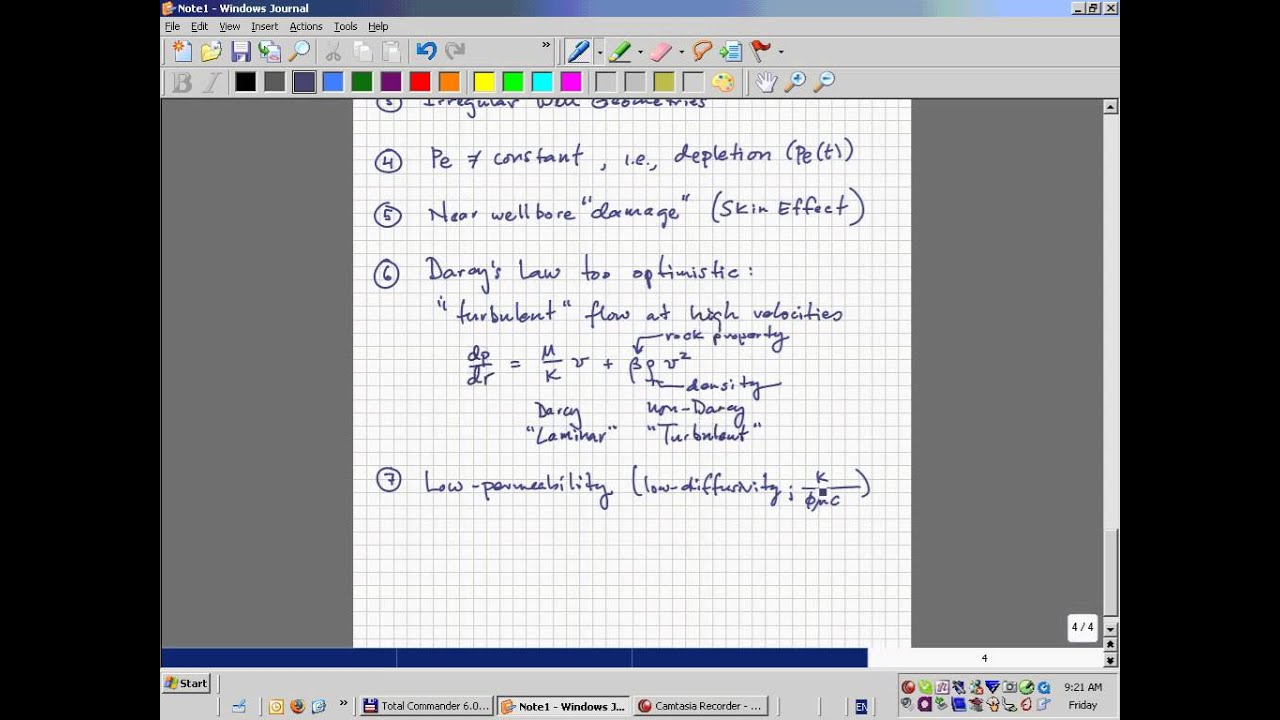 Note1 - Windows Journal
File Edit View Insert Actions Tools Help
③ Irregular Well Geometries
④ Pe ≠ constant, i.e., depletion (Pe(t))
⑤ Near wellbore "damage" (Skin Effect)
⑥ Darcy's Law too optimistic:
"turbulent" flow at high velocities
rock property
dp/dr = μ/K v + βρv²
density
Darcy non-Darcy
"Laminar" "Turbulent"
⑦ Low-permeability (low-diffusivity; K/ϕμc)
4 / 4
4
Start
Total Commander 6.0... Note1 - Windows J... Camtasia Recorder - ... EN
9:21 AM
Friday